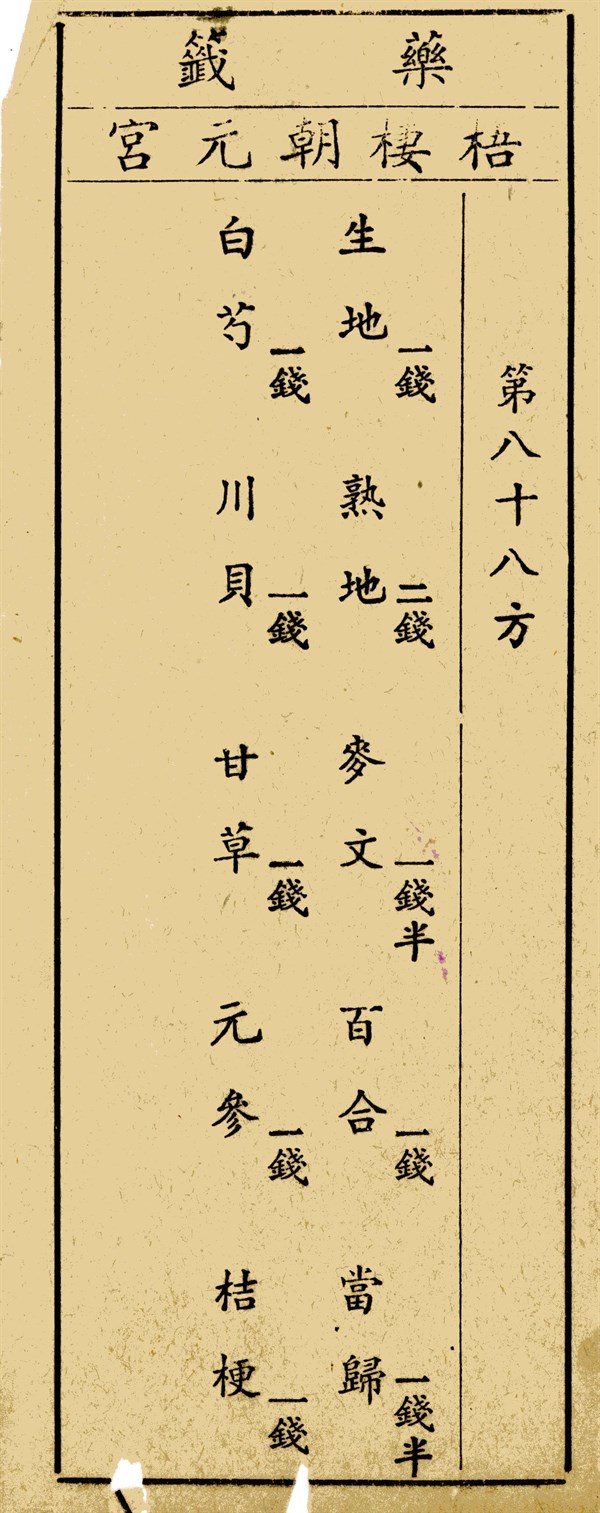 藥籤
梧棲朝元宮
第八十八方
生地一錢 熟地二錢 麥文一錢半 百合一錢 當歸一錢半
白芍一錢 川貝一錢 甘草一錢 元參一錢 桔梗一錢